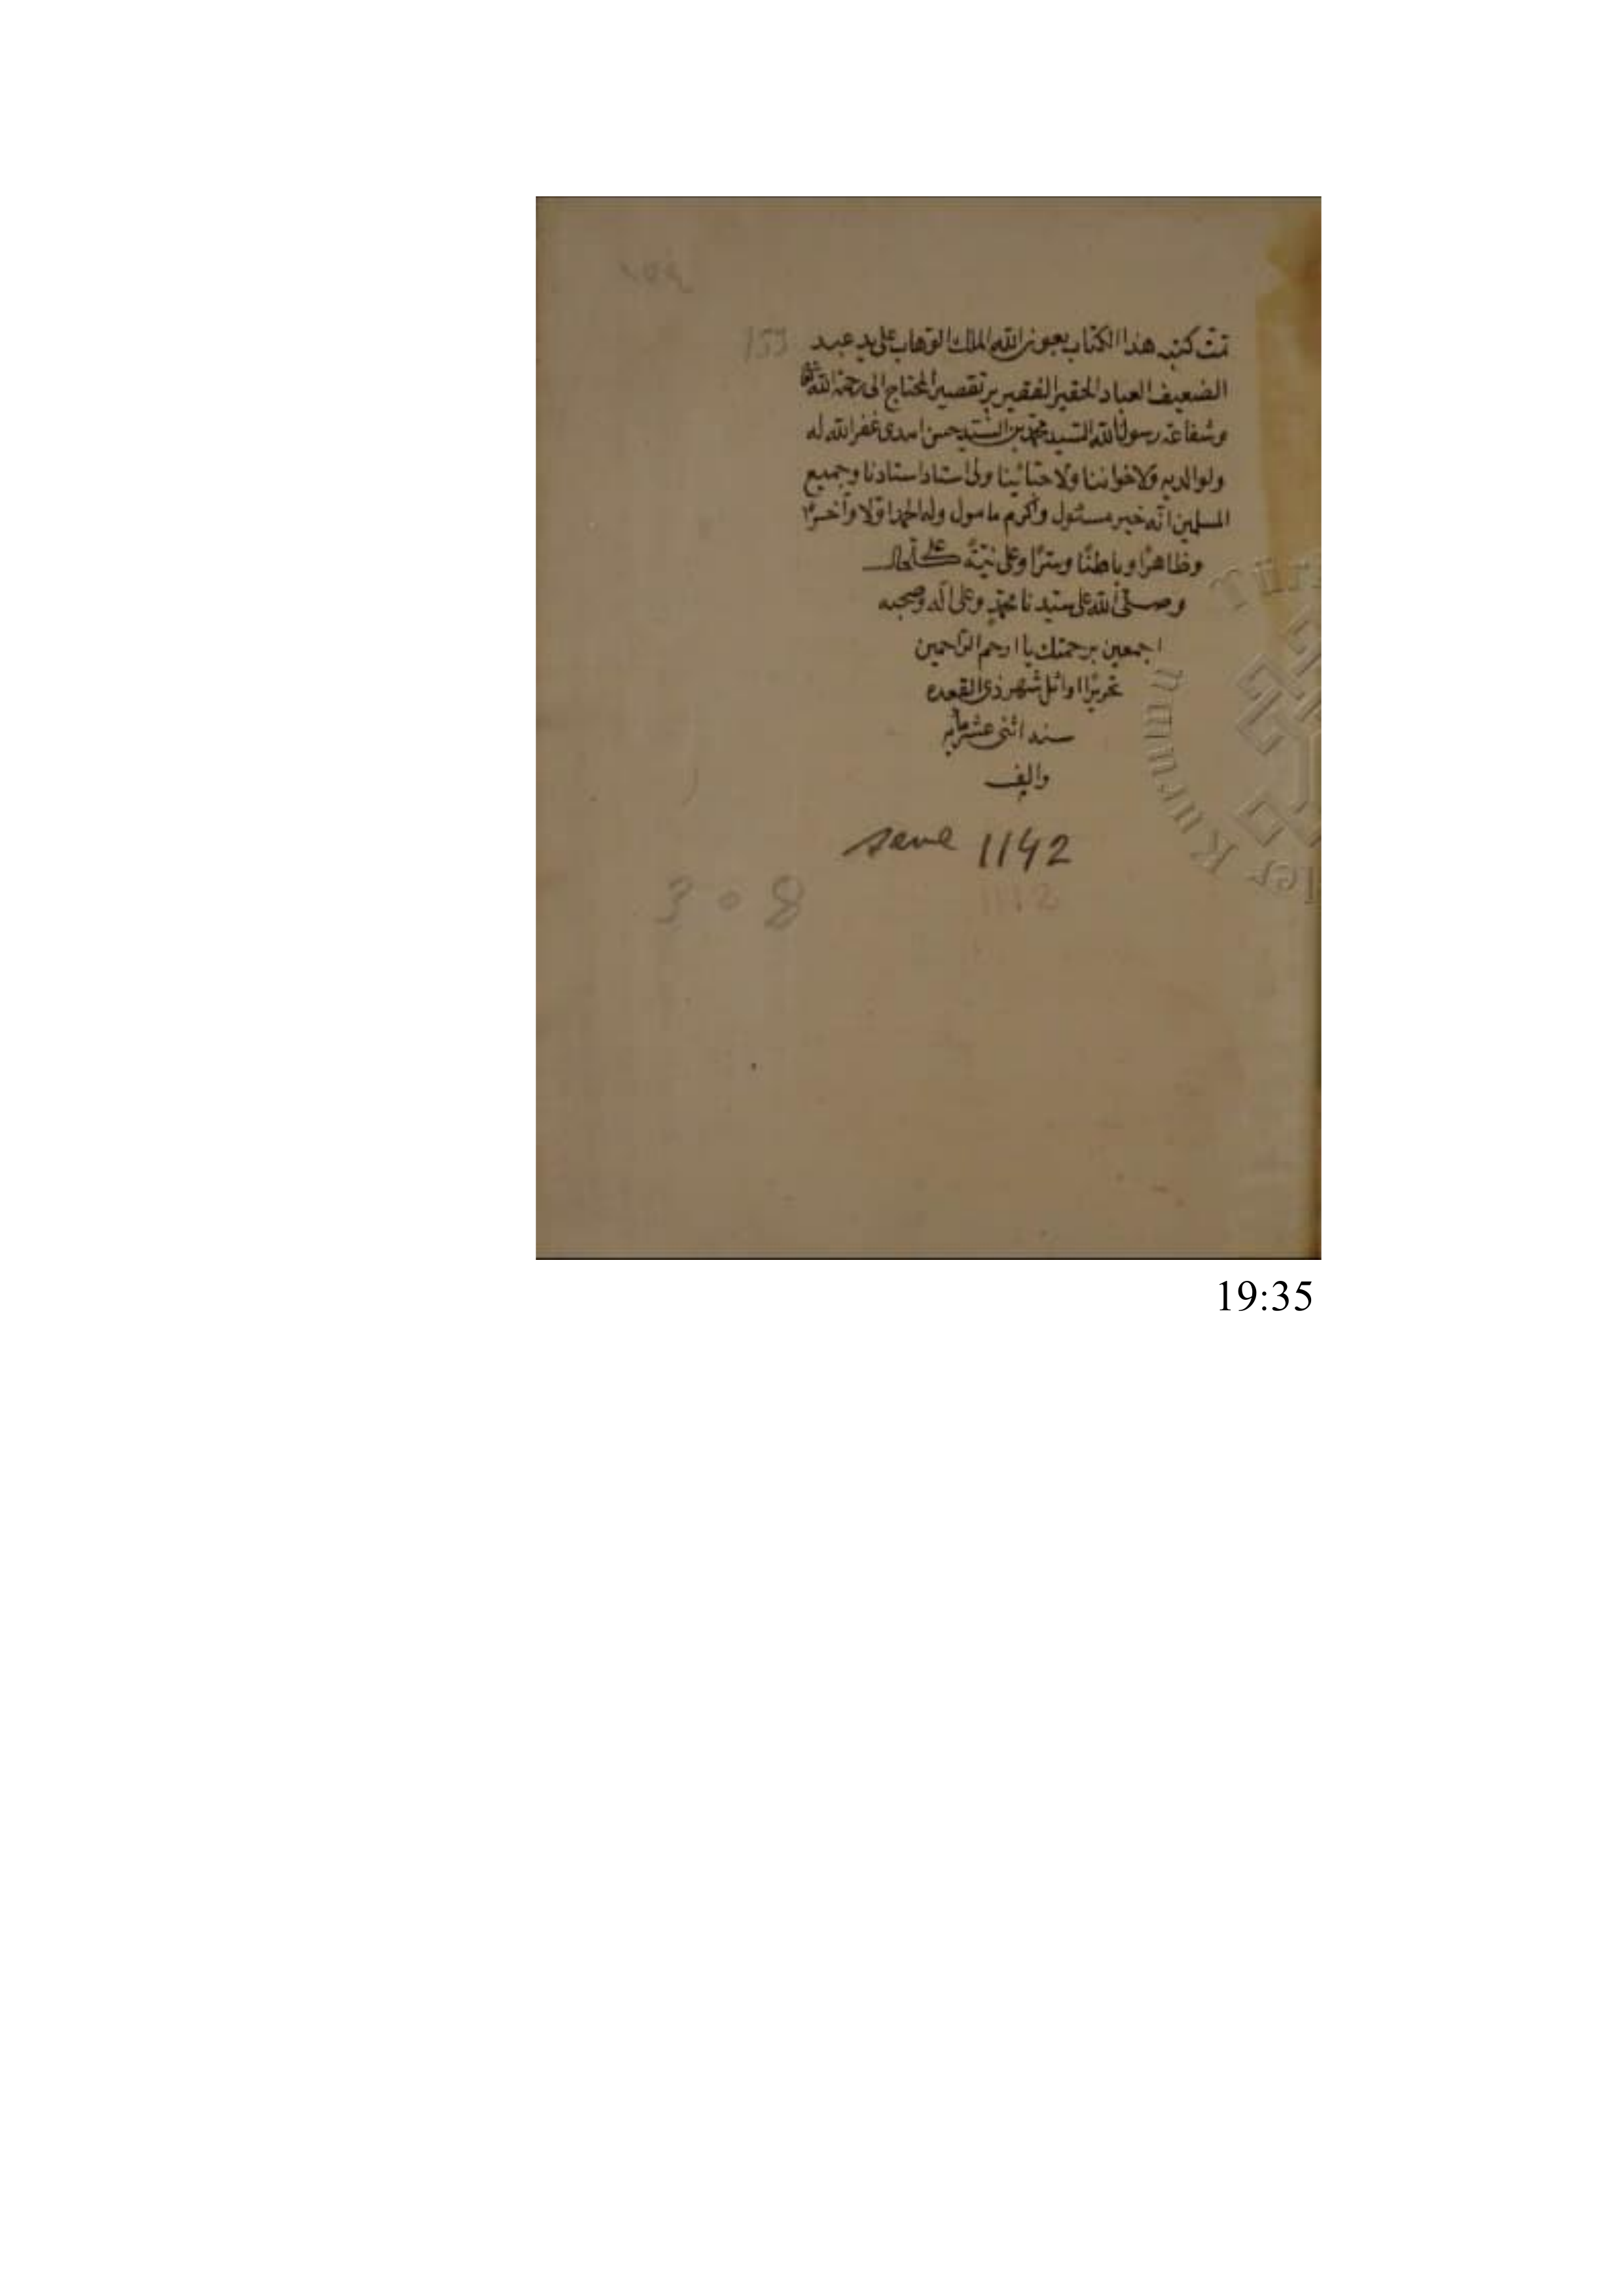 تمت كتبه هذا الكتاب بعون الله الملك الوهاب على يد عبد
الضعيف العباد الحقير الفقير پر تقصير المحتاج الى رحمة الله
وشفاعة رسول الله السيد محمد بن السيد حسن امدى غفر الله له
ولوالديه ولاخواننا ولاحبائينا ولى استاد استادنا وجميع
المسلمين انه خير مسئول واكرم مامول وله الحمد اوّلا وآخرًا
وظاهرًا وباطنًا وسرًا وعلى نيّة على كل حال
وصلى الله على سيدنا محمدٍ وعلى آله وصحبه
اجمعين برحمتك يا ارحم الراحمين
تحريرًا اوائل شهر ذى القعده
سنه اثنى عشر مايه
والف
sene 1142
1112
308
19:35